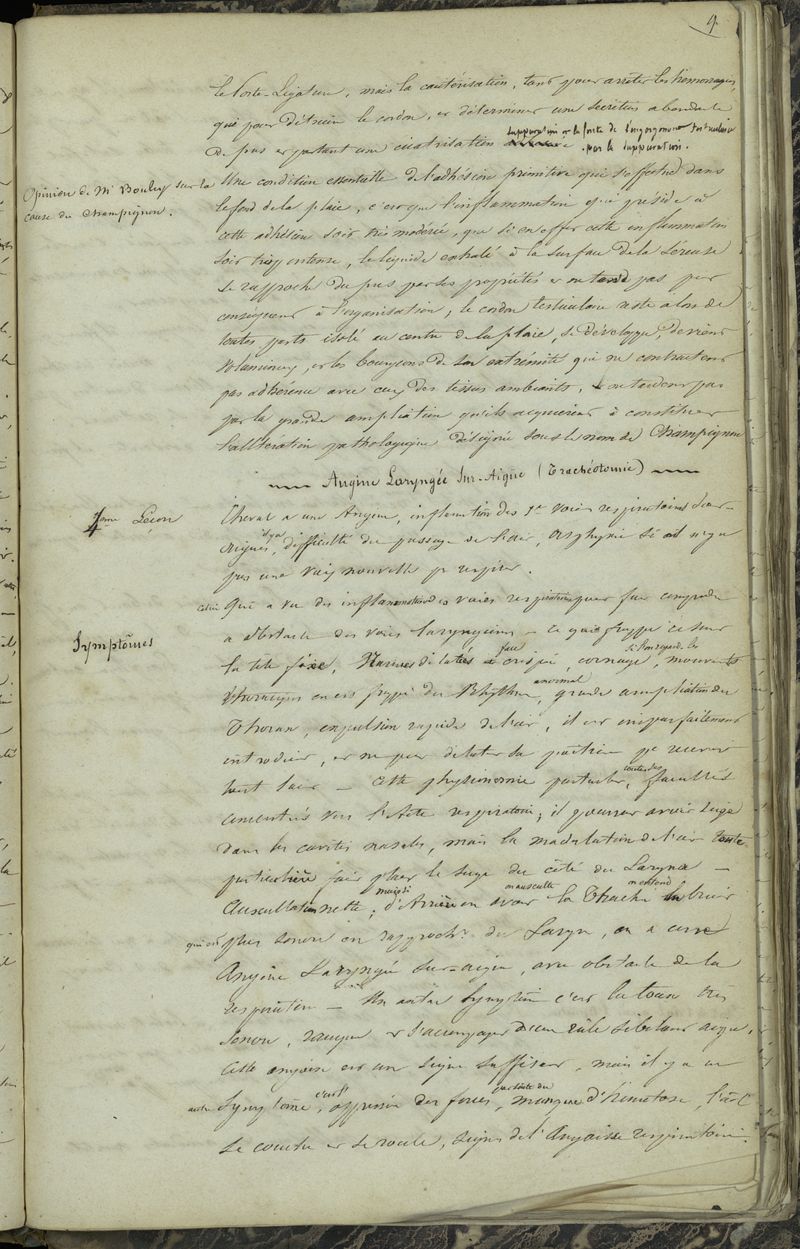 9.
le Porte-Ligature, mais la cautérisation, tant pour arrêter les hémorragies,
que pour détruire le cordon, et déterminer une secrétion abondante
de pus et partant une cicatrisation
suppuration et la fonte de l'engorgement testiculaire
par la suppuration.
Opinion de Mr Bouley sur la
cause du Champignon.
Une condition essentielle de l'adhésion primitive qui s'effectue dans
le fond de la plaie, c'est que l'inflammation qui préside à
cette adhésion soit très modérée, que si en effet cette inflammation
soit trop intense, le liquide exhalé à la surface de la Séreuse
se rapproche du pus par ses propriétés et ne tend pas par
conséquent à l'organisation, le cordon testiculaire reste alors de
toutes parts isolé au centre de la plaie, se développe, devient
volumineux, et les bourgeons de son extrémité qui ne contractent
pas adhérence avec ceux des tissus ambiants, ne tendent pas
par la grande ampliation qu'ils acquièrent à constituer
l'altération pathologique désignée sous le nom de Champignon
Angine Laryngée Sur-Aigue (Trachéotomie)
7eme Leçon
Cheval a une Angine, inflammation des 1re voies respiratoires
difficulté du passage de l'air, asphyxie si on n'ouvre
pas une voie nouvelle pr respirer.
Symptômes
Qui a vu des inflammations des voies respiratoires peut faire comprendre
a obstacle des voies laryngiennes — ce qui frappe c'est
la tête fixe, Narines dilatées face crispée, cornage, mouvements
si l'on regarde les
thoraciques on est frappé du Rhythme anormal, grande ampliation du
Thorax, expulsion rapide de l'air, il est imparfaitement
introduit, et ne peut dilater la poitrine pr recevoir
tout l'air — cette physionomie particulière, toutes les facultés
concentrées vers l'Acte respiratoire; il pourrait avoir siège
dans les cavités nasales, mais la modulation de l'air toute
particulière fait placer le siège du côté du Larynx —
Auscultation nette; mais si d'Arrière en avant on ausculte la Trachée on entend bruit
qui est plus sonore en rapprocht du Larynx, on a
Angine Laryngée sur-aigue, avec obstacle de la
respiration — Un autre Symptôme c'est la toux très
sonore, rauque et s'accompagne d'un râle sibilant aigu,
cette angoisse est un signe suffisant, mais il y a un
autre Symptôme, c'est oppression des forces, par suite du manque d'hématose, l'Al
se couche et se roule, signes de l'Angoisse respiratoire.